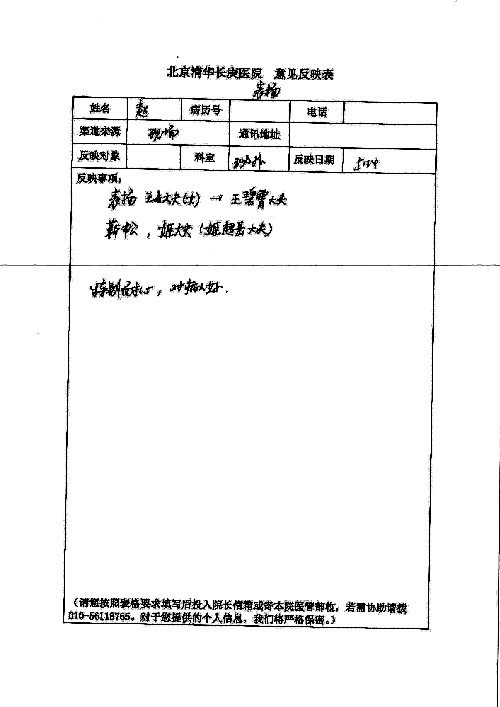 北京清华长庚医院 意见反映表
表扬
姓名 赵 病历号 电话
渠道来源 现场 通讯地址
反映对象 科室 反映日期
反映事项:
表扬 大夫(女) → 王碧霄大夫
靳松，姬大夫（姬超岳大夫）
特别耐心，对病人好.
（请您按照表格要求填写后投入院长信箱或寄本院医管部收，若需协助请拨
010-56118765。对于您提供的个人信息，我们将严格保密。）